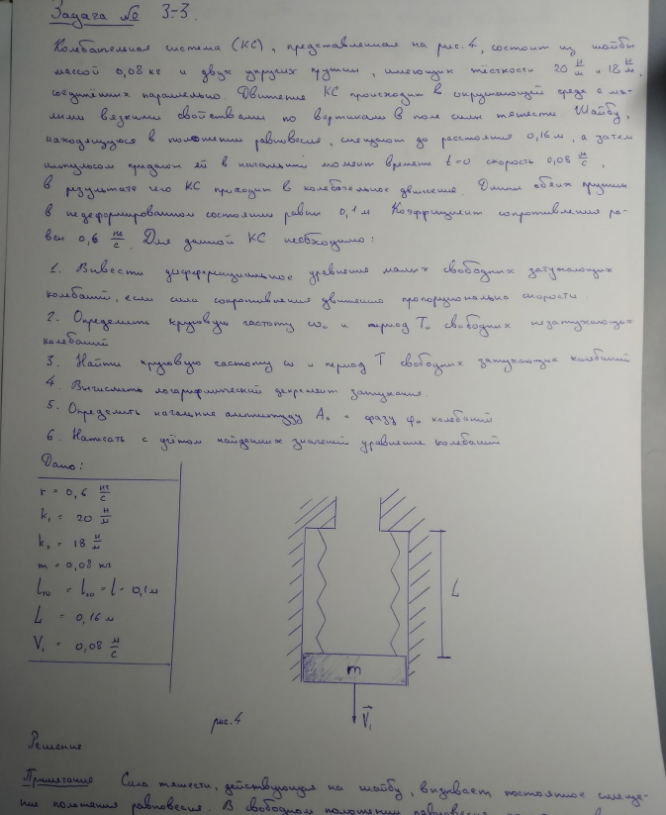 Задача № 3-3.
Колебательная система (КС), представленная на рис. 4, состоит из шайбы
массой 0,08 кг и двух упругих пружин, имеющих жёсткости 20 н/м и 18 н/м,
соединённых параллельно. Движение КС происходит в окружающей среде с ма-
лыми вязкими свойствами по вертикали в поле силы тяжести. Шайбу,
находящуюся в положении равновесия, смещают до расстояния 0,16 м, а затем
импульсом придают ей в начальный момент времени t=0 скорость 0,08 м/с,
в результате чего КС приходит в колебательное движение. Длины обеих пружин
в недеформированном состоянии равны 0,1 м. Коэффициент сопротивления ра-
вен 0,6 кг/с. Для данной КС необходимо:
1. Вывести дифференциальное уравнение малых свободных затухающих
колебаний, если сила сопротивления движению пропорциональна скорости.
2. Определить круговую частоту ω₀ и период T₀ свободных незатухающих
колебаний
3. Найти круговую частоту ω и период T свободных затухающих колебаний
4. Вычислить логарифмический декремент затухания.
5. Определить начальные амплитуду A₀ и фазу φ₀ колебаний
6. Написать с учётом найденных значений уравнение колебаний
Дано:
r = 0,6 кг/с
k₁ = 20 н/м
k₂ = 18 н/м
m = 0,08 кг
l₁₀ = l₂₀ = l = 0,1 м
L = 0,16 м
V₁ = 0,08 м/с
L
m
V₁
рис. 4
Решение
Примечание Сила тяжести, действующая на шайбу, вызывает постоянное смеще-
ние положения равновесия. В свободном положении равновесия